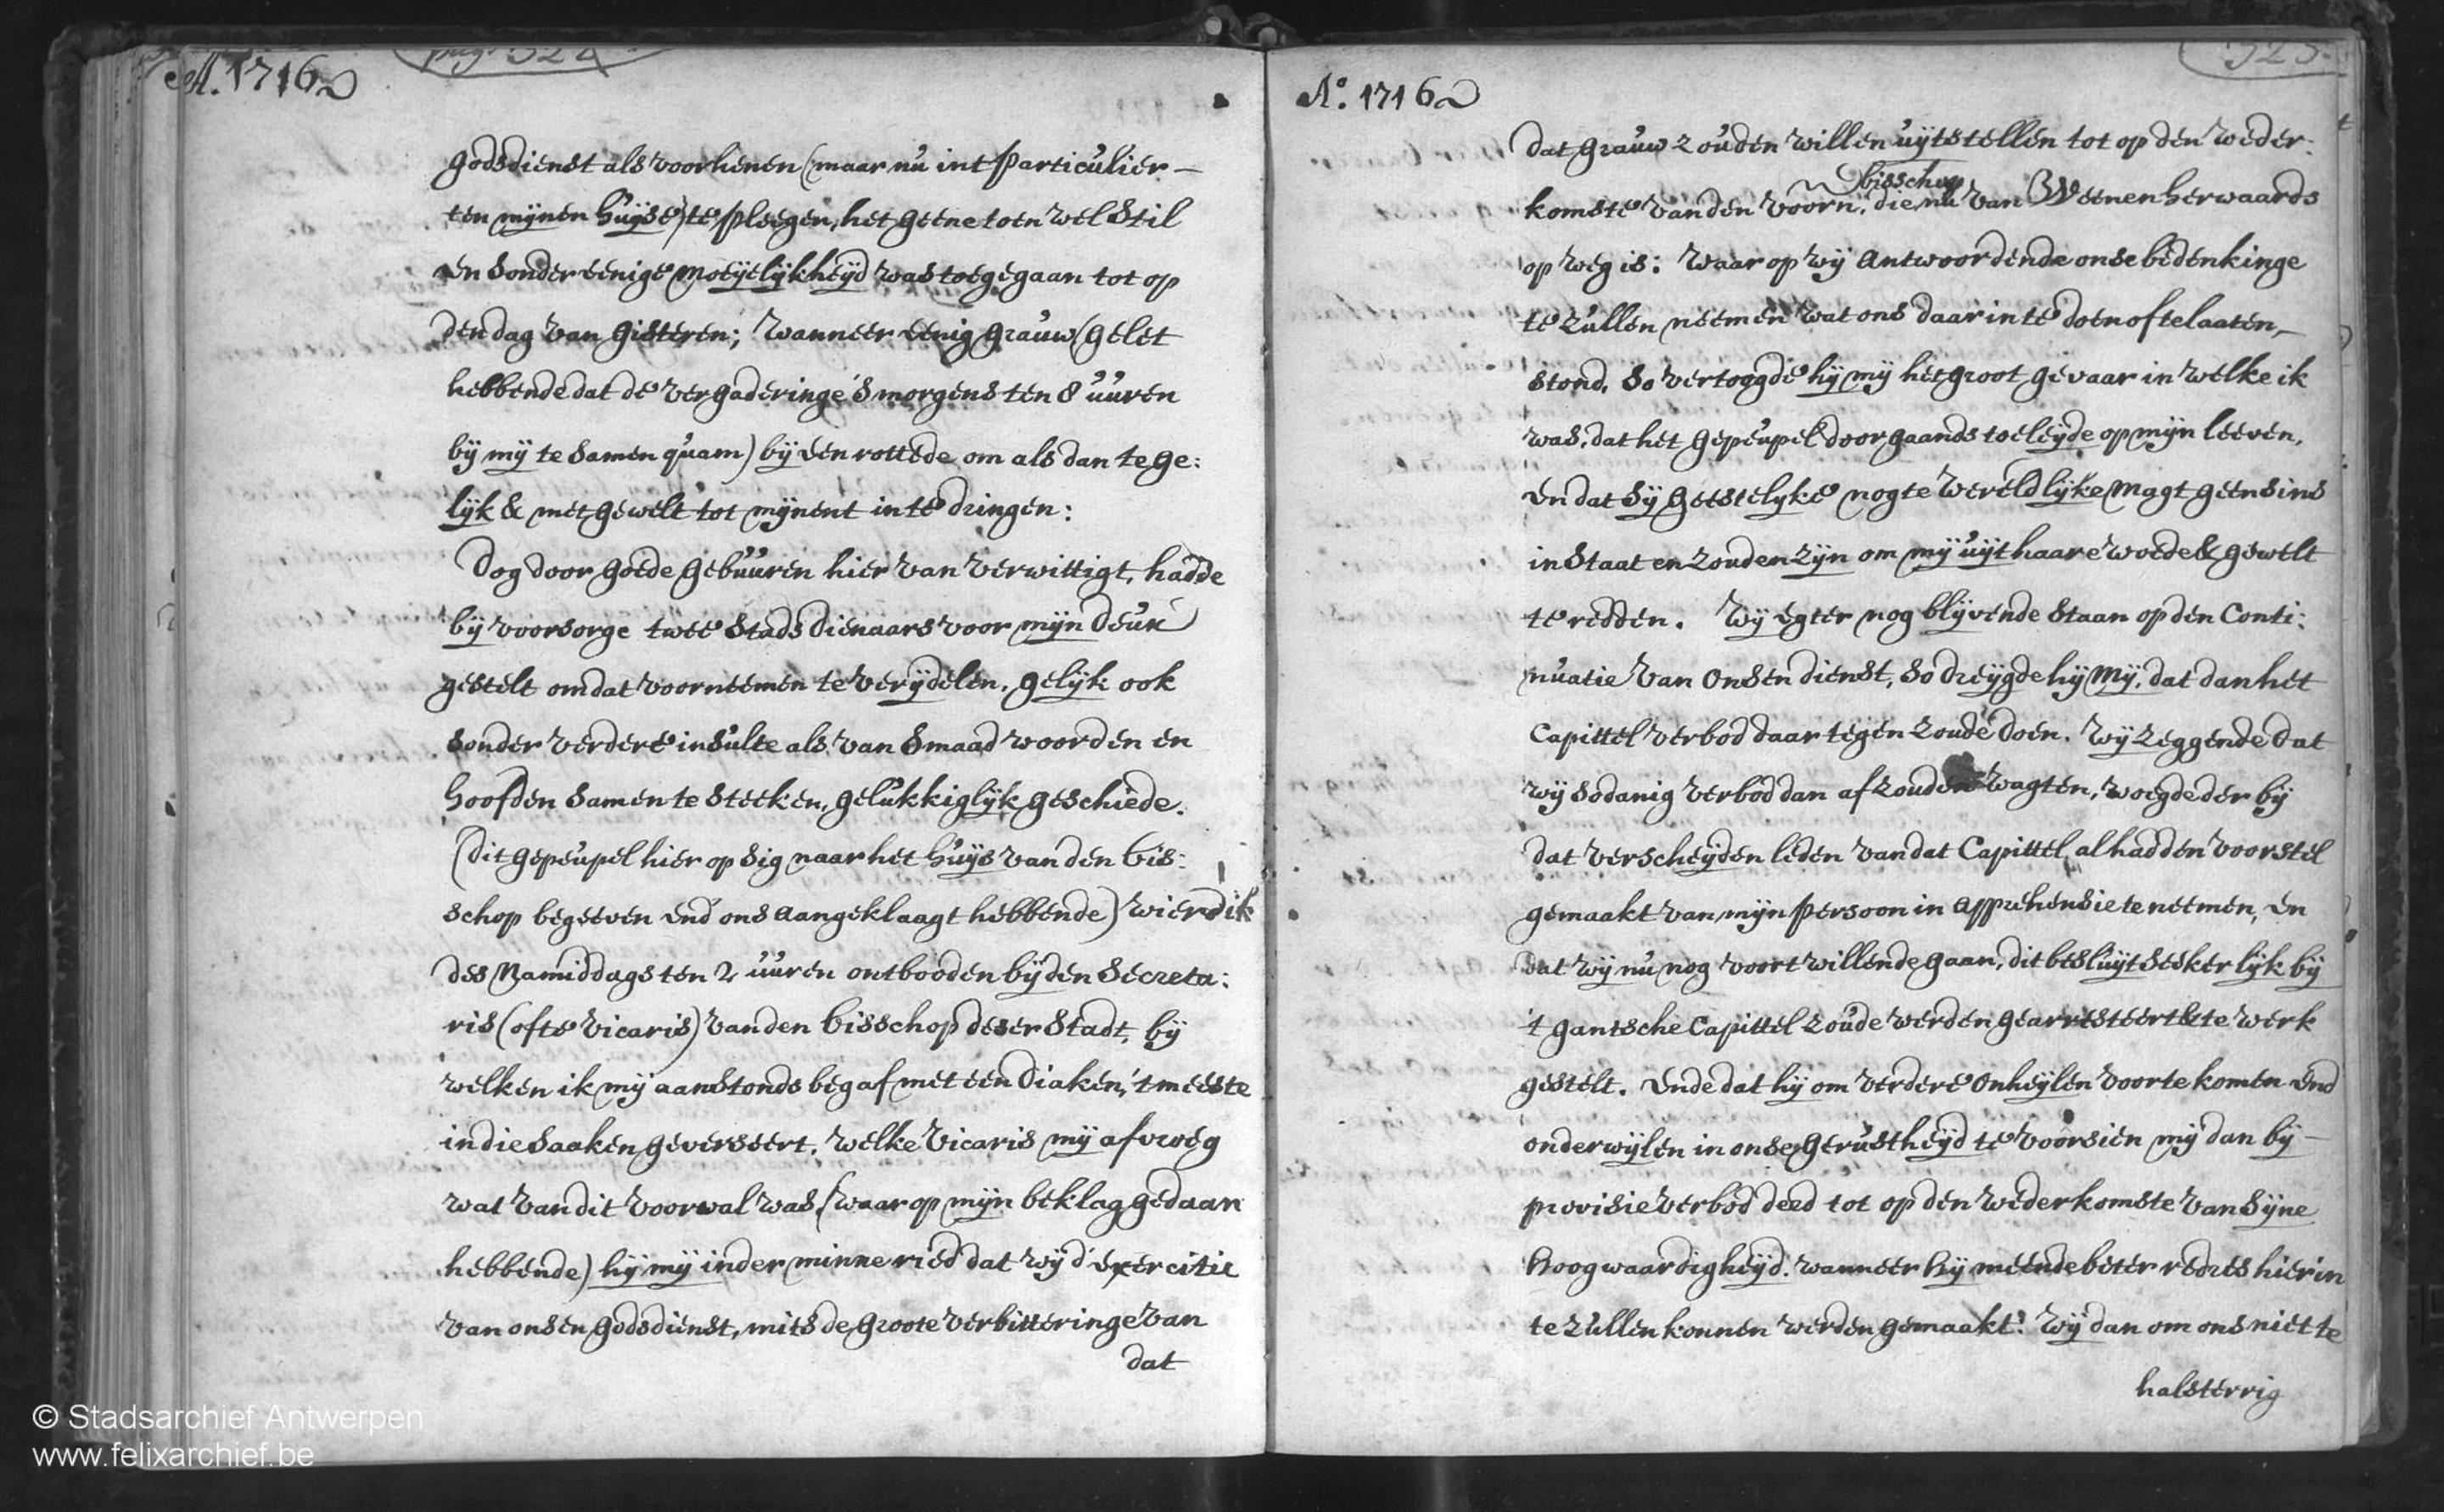 A. 1716
pag. 324
godsdienst als voorhenen (maar nu int particulier —
ten mijnen huijse) te pleegen, het geene toen wel stil
en sonder eenige moeijelijkheijd was toegegaan tot op
den dag van gisteren; wanneer eenig grauw (gelet
hebbende dat de vergaderinge 's morgens ten 8 uuren
bij mij te samen quam) bij een rottede om als dan te ge:
lijk & met gewelt tot mijnent in te dringen:
Dog door goede gebuuren hier van verwittigt, hadde
bij voorsorge twee stads dienaars voor mijn deur
gestelt om dat voorneemen te verijdelen, gelijk ook
sonder verdere insulte als van smaad woorden en
hoofden samen te steeken, gelukkiglijk geschiede.
(dit gepeupel hier op sig naar het huijs van den bis:
schop begeeven end ons aangeklaagt hebbende) wierd ik
des Namiddags ten 2 uuren ontbooden bij den Secreta:
ris (ofte vicaris) van den bisschop deser Stadt, bij
welken ik mij aanstonds begaf met een diaken, 't meeste
in die saaken geverseert. Welke Vicaris mij afvroeg
wat van dit voorval was, (waar op mijn beklag gedaan
hebbende) hij mij in der minne ried dat wij d'exercitie
van onsen godsdienst, mits de groote verbitteringe van
dat
© Stadsarchief Antwerpen
www.felixarchief.be
325.
A°. 1716
dat grauw zouden willen uijtstellen tot op den weder:
bisschop
komste van den voorn. die nu van Weenen herwaards
op weg is: waar op wij antwoordende onse bedenkinge
te zullen neemen wat ons daar in te doen of te laaten,—
stond, so vertoogde hij mij het groot gevaar in welke ik
was, dat het gepeupel doorgaands toeleijde op mijn leeven,
en dat sij geestelyke nogte wereldlijke magt geensins
in staat en zouden zijn om mij uijt haare woede & gewelt
te redden. Wij egter nog blijvende staan op den Conti:
nuatie van onsen dienst, so dreijgde hij mij, dat dan het
Capittel verbod daar tegen zoude doen. Wij zeggende dat
wij sodanig verbod dan af zouden wagten, voegde der bij
dat verscheijden leden van dat Capittel al hadden voorstel
gemaakt van mijn persoon in apprehensie te neemen, en
dat wij nu nog voort willende gaan, dit besluijt sekerlijk bij
't gantsche Capittel zoude werden gearresteert & te werk
gestelt. ende dat hij om verdere onheijlen voor te komen end
onderwijlen in onse gerustheijd te voorsien mij dan bij —
provisie verbod deed tot op den wederkomste van sijne
hoogwaardigheijd. wanneer hij meende beter redres hier in
te zullen konnen werden gemaakt. Wij dan om ons niet te
halsterrig